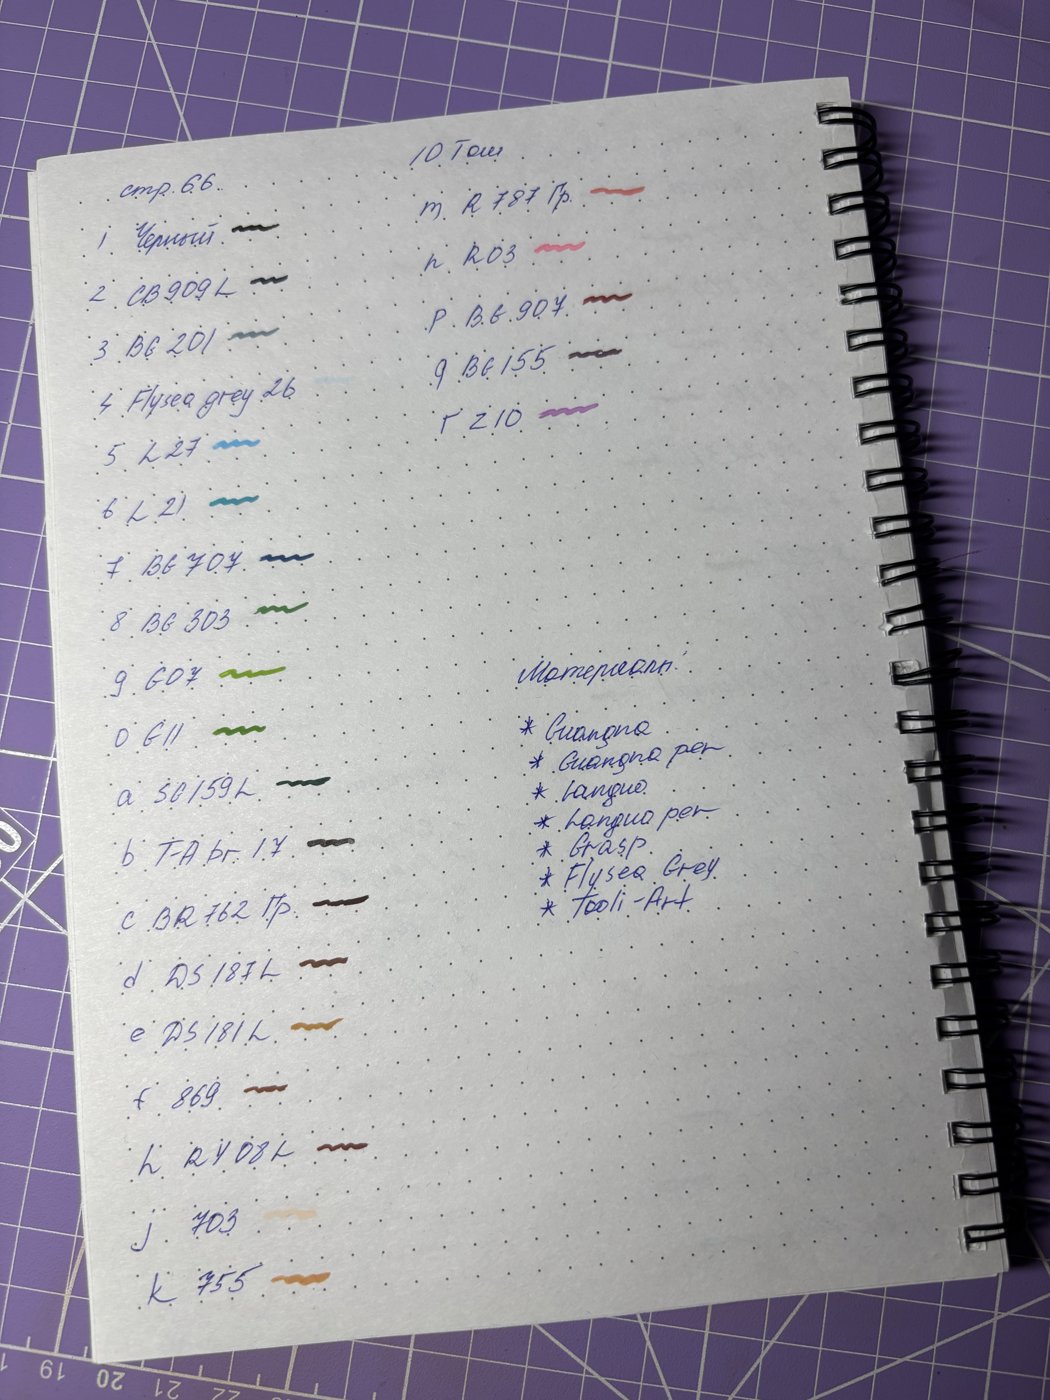 стр. 66
10 Том
1 Черный
2 CB909L
3 BG 201
4 Flysea grey 26
5 L27
6 L21
7 BG 707
8 BG 303
9 G07
0 G11
a SG159L
b T-A br. 17
c BR762 Гр.
d DS187L
e DS181L
f 869
h RY08L
j 703
k 755
m R 787 Гр.
n R03
p BG 907
q BG155
r 210
Материалы:
* Guangna
* Guangna pen
* Languo
* Languo pen
* Grasp
* Flysea Grey
* Tooli-Art
19 20 21 22